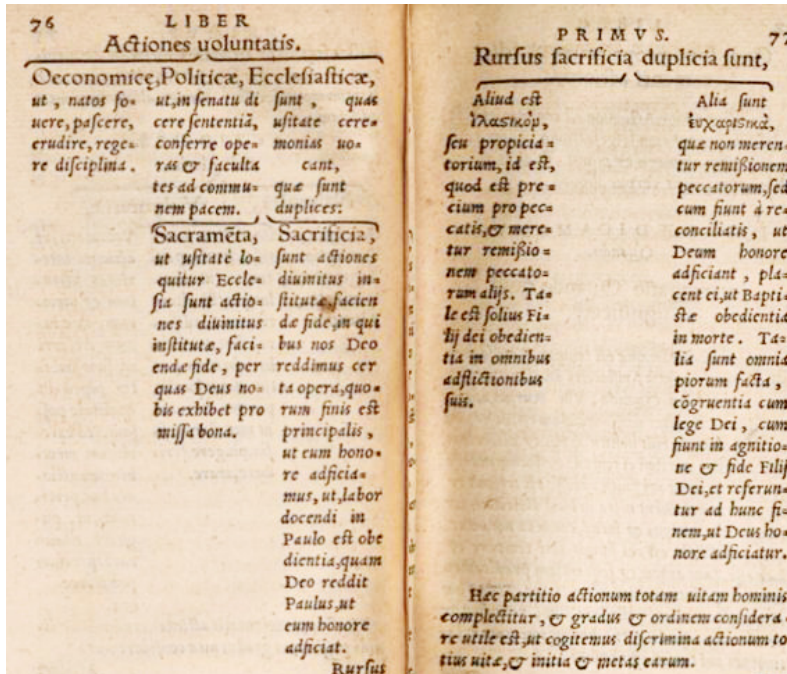 76
LIBER
Actiones uoluntatis.
Oeconomicę, Politicæ, Ecclesiasticæ,
ut, natos fo-
uere, pascere,
erudire, rege-
re disciplina.
ut, in senatu di
cere sententiã,
conferre ope-
ras & faculta
tes ad commu-
nem pacem.
sunt, quas
usitate cere-
monias uo-
cant,
quæ sunt
duplices:
Sacramẽta,
ut usitatè lo-
quitur Eccle-
sia sunt actio-
nes diuinitus
institutæ, faci-
endæ fide, per
quas Deus no-
bis exhibet pro
missa bona.
Sacrificia,
sunt actiones
diuinitus in-
stitutæ, facien
dæ fide, in qui
bus nos Deo
reddimus cer
ta opera, quo-
rum finis est
principalis,
ut eum hono-
re adficia-
mus, ut, labor
docendi in
Paulo est obe
dientia, quam
Deo reddit
Paulus, ut
eum honore
adficiat.
Rursus
PRIMVS.
77
Rursus sacrificia duplicia sunt,
Aliud est
ἱλαστικὸμ,
seu propicia-
torium, id est,
quod est pre-
cium pro pec-
catis, & mere-
tur remißio-
nem peccato-
rum alijs. Ta-
le est solius Fi-
lij dei obedien-
tia in omnibus
adflictionibus
suis.
Alia sunt
ἐυχαριστικὰ,
quæ non meren-
tur remißionem
peccatorum, sed
cum fiunt à re-
conciliatis, ut
Deum honore
adficiant, pla-
cent ei, ut Bapti-
stæ obedientia
in morte. Ta-
lia sunt omnia
piorum facta,
cõgruentia cum
lege Dei, cum
fiunt in agnitio-
ne & fide Filij
Dei, et referun-
tur ad hunc fi-
nem, ut Deus ho-
nore adficiatur.
Hæc partitio actionum totam uitam hominis
complectitur, & gradus & ordinem considera-
re utile est, ut cogitemus discrimina actionum to
tius uitæ, & initia & metas earum.